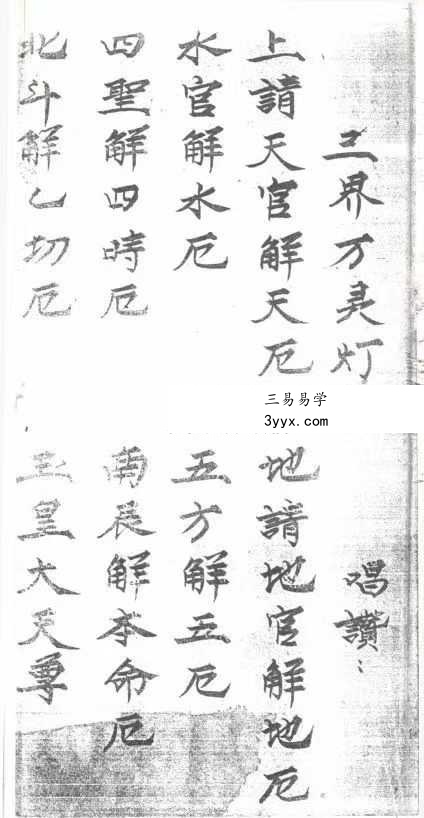 三界万灵灯
上請天官解天厄
水官解水厄
四聖解四時厄
北斗解乙切厄
三易易学
3yyx.com
唱讚：
地請地官解地厄
五方解五厄
南辰解本命厄
玉皇大天尊